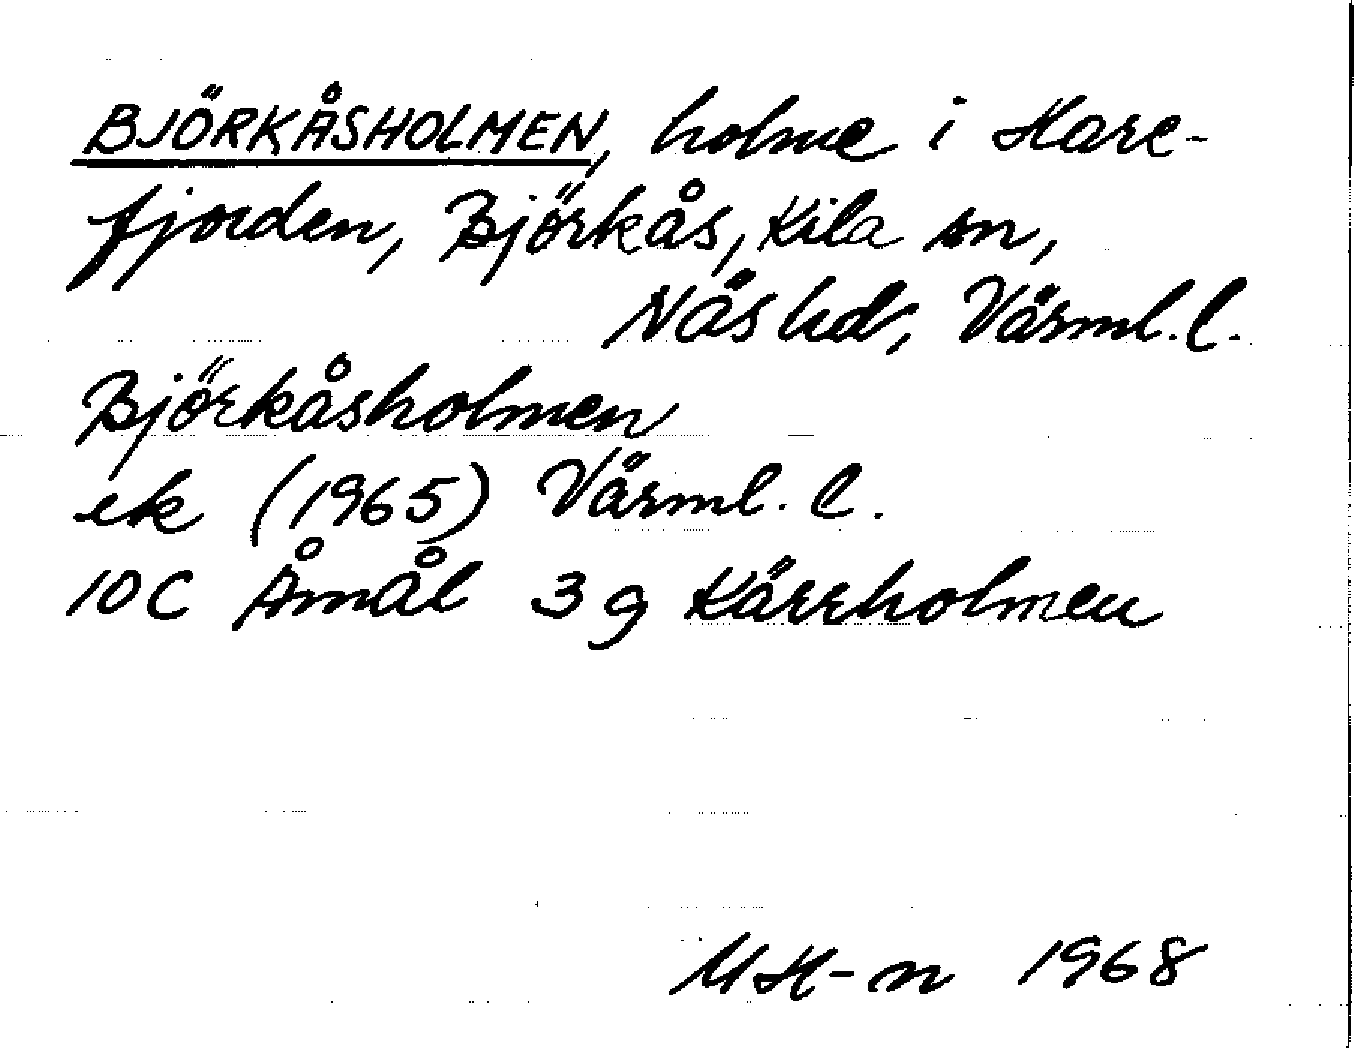 BJÖRKÅSHOLMEN, holme i Hare-
fjorden, Björkås, Kila sn,
Näs hd, Värml. l.
Björkåsholmen
ek (1965) Värml. l.
10C Åmål 3 g Kärrholmen
MH-n 1968